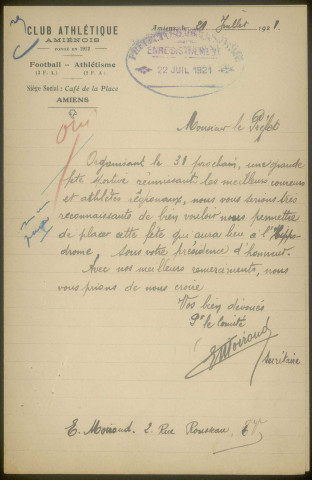 CLUB ATHLÉTIQUE
AMIENOIS
FONDÉ EN 1912
Football - Athlétisme
(F. F. A.) (F. F. A.)
Siège Social : Café de la Place
AMIENS
Amiens, le 21 Juillet 1921.
PRÉFECTURE DE LA SOMME
ENREGISTREMENT
22 JUIL 1921
oui
Monsieur le Préfet
Organisant le 31 prochain, une grande
fête sportive réunissant les meilleurs coureurs
et athlètes régionaux, nous vous serions très
reconnaissants de bien vouloir nous permettre
de placer cette fête qui aura lieu à l'Hippo-
drome, sous votre présidence d'honneur.
Avec nos meilleurs remerciements, nous
vous prions de nous croire
Vos bien dévoués
Pr le Comité
EMoiroud
Secrétaire
E. Moiroud. 2 Rue Rousseau,